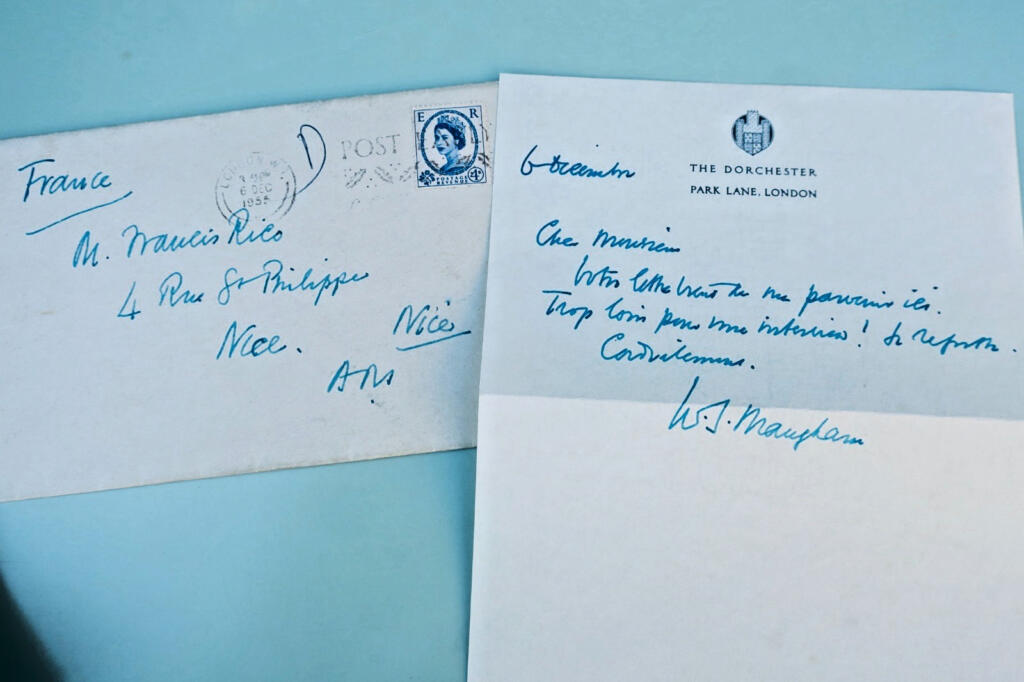 France
LONDON W.1
6 DEC
1955
D
POST
E R
POSTAGE
REVENUE
4D
M. Francis Rico
4 Rue St Philippe
Nice.
Nice
A.M.
6 Décembre
THE DORCHESTER
PARK LANE, LONDON
Cher Monsieur
Votre lettre vient de me parvenir ici.
Trop loin pour une interview! Je regrette.
Cordialement.
W.S. Maugham